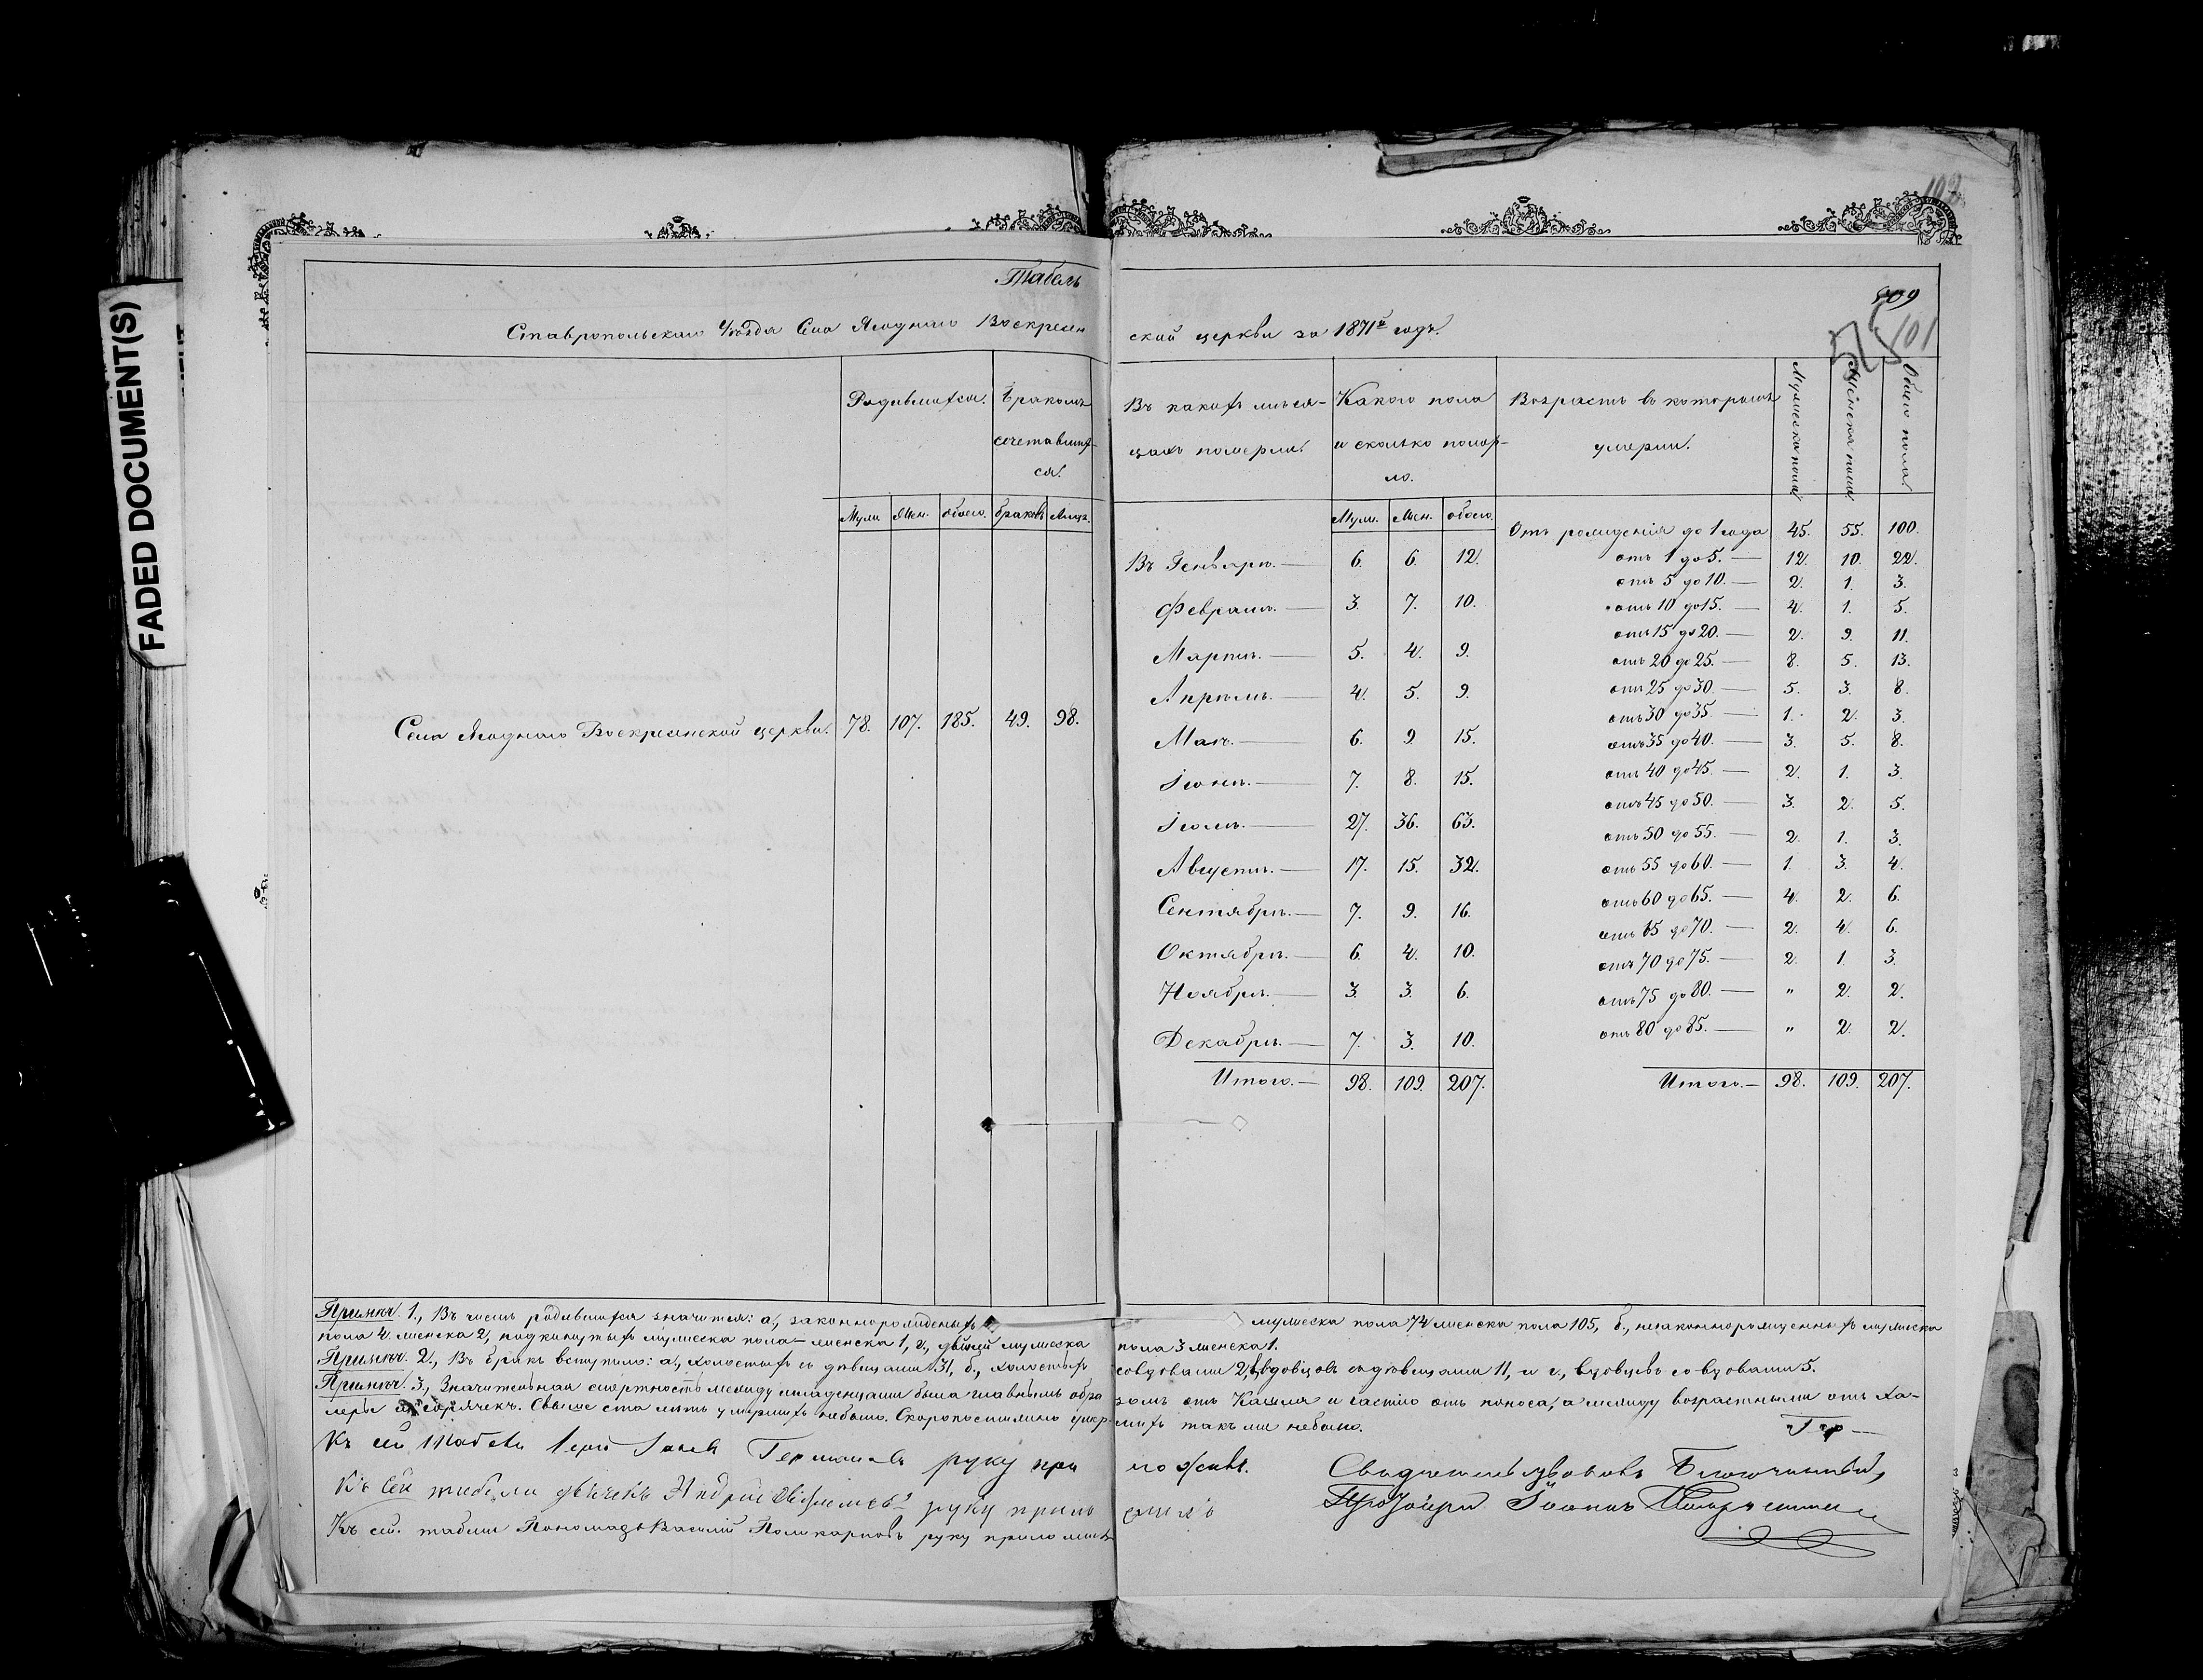 FADED DOCUMENT(S)
102
Табель
Ставропольскаго Уѣзда Села Ягоднаго Воскресен
ской церкви за 1871й годъ.
509
101
Родившихся.
Бракомъ сочетавших-
ся.
Въ какихъ мѣся-
цахъ померли.
Какого пола
и сколько помер-
ло.
Возрастъ въ которомъ
умерли.
Мужеска пола
Женска пола
Обоего пола
Муж. Жен. обоего. браковъ Лицъ.
Муж. Жен. обоего.
Села Ягоднаго Воскресенской церкви. 78. 107. 185. 49. 98.
Въ Генварѣ. — 6. 6. 12.
Февралѣ. — 3. 7. 10.
Мартѣ. — 5. 4. 9.
Апрѣлѣ. — 4. 5. 9.
Маѣ. — 6. 9. 15.
Іюнѣ. — 7. 8. 15.
Іюлѣ. — 27. 36. 63.
Августѣ. — 17. 15. 32.
Сентябрѣ. — 7. 9. 16.
Октябрѣ. — 6. 4. 10.
Ноябрѣ. — 3. 3. 6.
Декабрѣ. — 7. 3. 10.
Итого. — 98. 109. 207.
Отъ рожденія до 1 года 45. 55. 100.
отъ 1 до 5. — 12. 10. 22.
отъ 5 до 10. — 2. 1. 3.
отъ 10 до 15. — 4. 1. 5.
отъ 15 до 20. — 2. 9. 11.
отъ 20 до 25. — 8. 5. 13.
отъ 25 до 30. — 5. 3. 8.
отъ 30 до 35. — 1. 2. 3.
отъ 35 до 40. — 3. 5. 8.
отъ 40 до 45. — 2. 1. 3.
отъ 45 до 50. — 3. 2. 5.
отъ 50 до 55. — 2. 1. 3.
отъ 55 до 60. — 1. 3. 4.
отъ 60 до 65. — 4. 2. 6.
отъ 65 до 70. — 2. 4. 6.
отъ 70 до 75. — 2. 1. 3.
отъ 75 до 80. — " 2. 2.
отъ 80 до 85. — " 2. 2.
Итого. — 98. 109. 207.
Примѣч. 1., Въ числѣ родившихся значится: а., законнорожденныхъ мужеска пола 74 женска пола 105, б., незаконнорожденныхъ мужеска
пола 4. женска 2, подкинутыхъ мужеска пола — женска 1, г., двойней мужеска пола 3 женска 1.
Примѣч. 2., Въ бракъ вступило: а., холостыхъ съ дѣвицами 31, б., холостыхъ со вдовами 2, вдовцовъ съ дѣвицами 11, и г., вдовцевъ со вдовами 5.
Примѣч. 3., Значительная смертность между младенцами была главнымъ обра зомъ отъ Кашля и частію отъ поноса, а между возрастными отъ Хо-
леры и горячекъ. Свыше ста лѣтъ умершихъ небыло. Скоропостижно умер- шихъ такъ же небыло.
Къ сей табели Іерей Германовъ руку при ложилъ.
Къ сей табели дьячекъ Андрей руку прило жилъ
Къ сей табели Пономарь Василій Поликарповъ руку приложилъ
Свидѣтельствовалъ Благочинный,
Протоіерей Іоаннъ